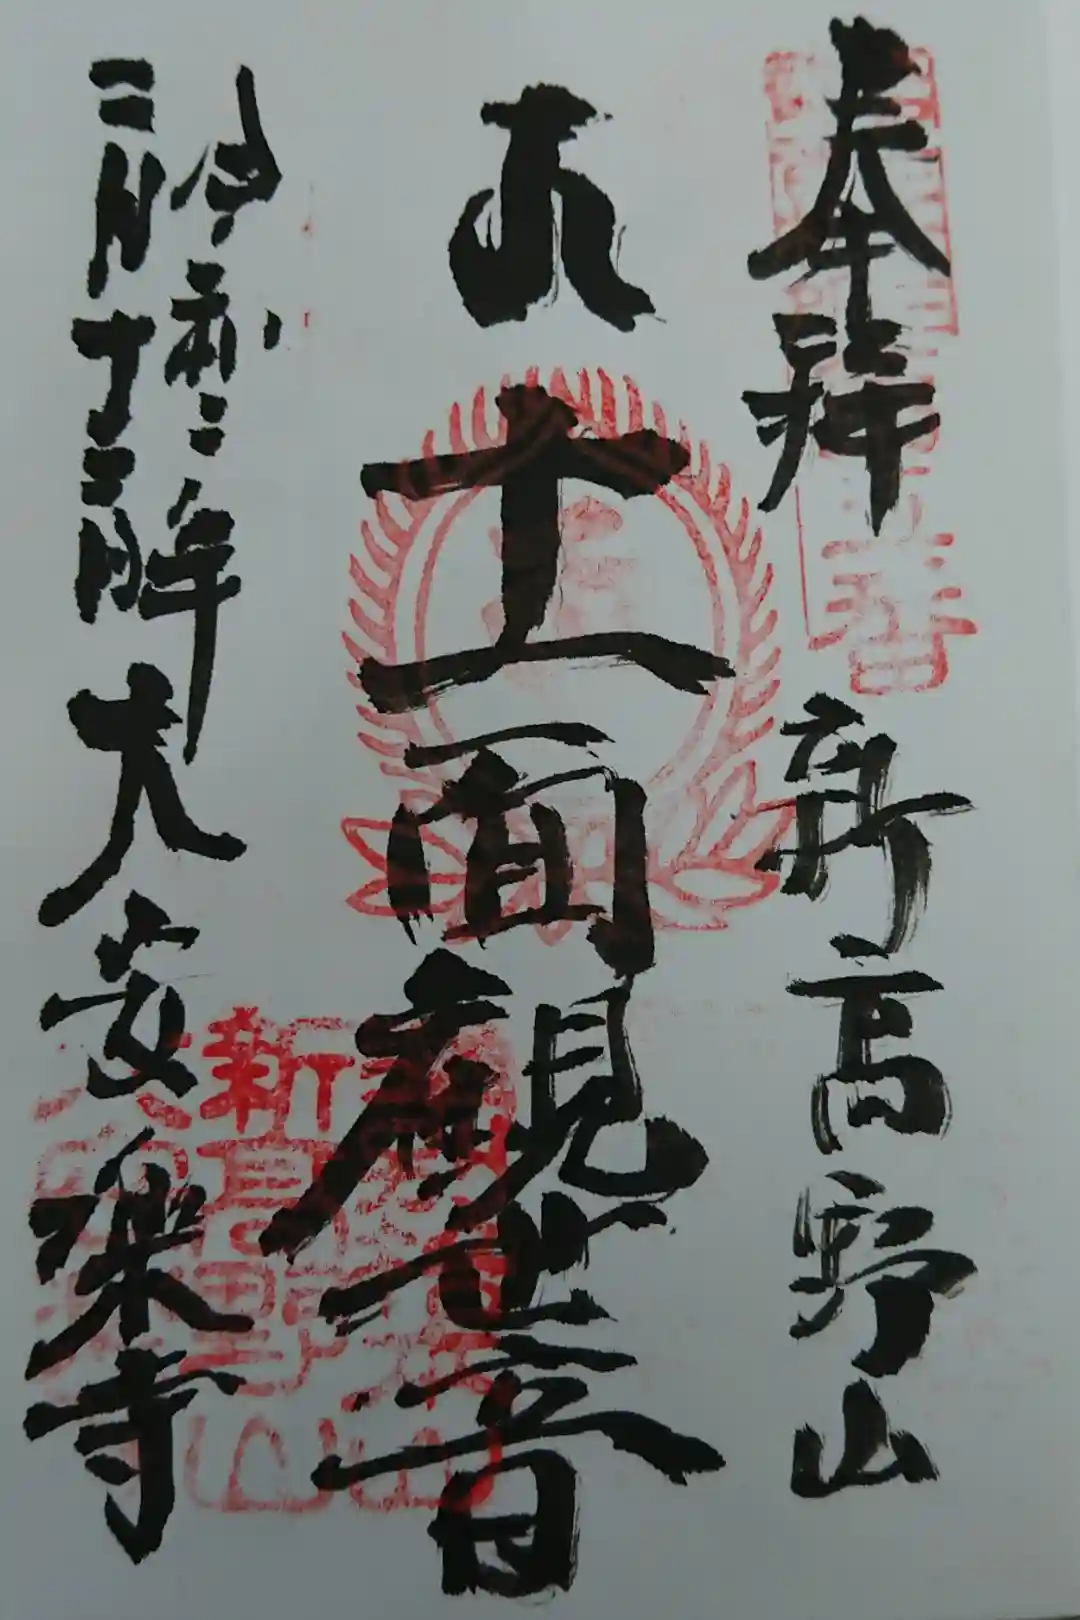 奉拝 新高野山
十一面觀世音
令和二年
二月十二日 大安楽寺
新高野山